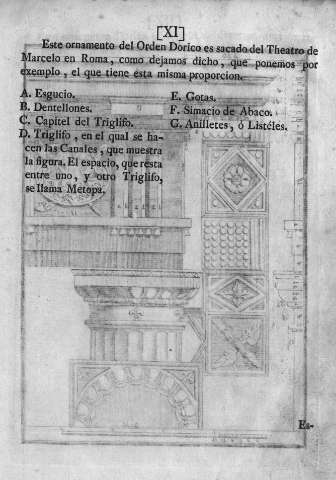 [XI]
Este ornamento del Orden Dorico es sacado del Theatro de
Marcelo en Roma, como dejamos dicho, que ponemos por
exemplo, el que tiene esta misma proporcion.
A. Esgucio.
B. Dentellones.
C. Capitel del Triglifo.
D. Triglifo, en el qual se ha-
cen las Canales, que muestra
la figura. El espacio, que resta
entre uno, y otro Triglifo,
se llama Metopa.
E. Gotas.
F. Simacio de Abaco.
G. Anilletes, ò Listéles.
Es-